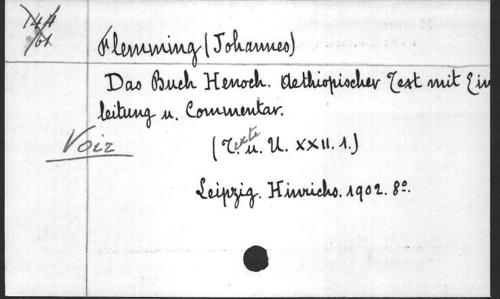 Flemming (Johannes)
Das Buch Henoch. Aethiopischer Text mit Ein
leitung u. Commentar.
Voir
(Texte u. U. XXII. 1.)
Leipzig. Hinrichs. 1902. 8°.